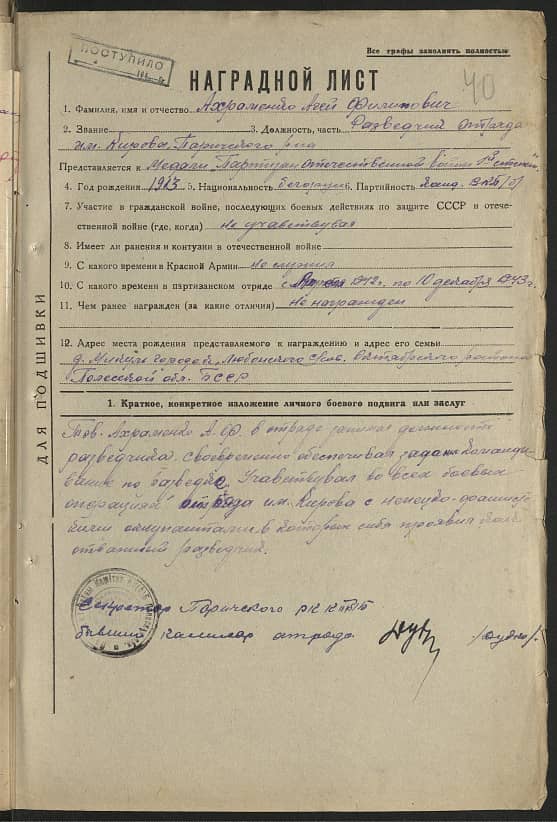 Все графы заполнять полностью
ПОСТУПИЛО
40
НАГРАДНОЙ ЛИСТ
1. Фамилия, имя и отчество Ахраменко Агей Филипович
2. Звание 3. Должность, часть Разведчик отряда
им. Кирова, Паричского р-на
Представляется к Медали Партизан Отечественной войны
4. Год рождения 1913 5. Национальность белорус 6. Партийность Канд. ВКП/б/
7. Участие в гражданской войне, последующих боевых действиях по защите СССР и отече-
ственной войне (где, когда) Не учавствувал
8. Имеет ли ранения и контузии в отечественной войне
9. С какого времени в Красной Армии Не служил
10. С какого времени в партизанском отряде с 1942г. по 10 декабря 1943г.
11. Чем ранее награжден (за какие отличия) Не награжден
12. Адрес места рождения представляемого к награждению и адрес его семьи
д. Октябрьского района
Полесской обл. БССР
ДЛЯ ПОДШИВКИ
1. Краткое, конкретное изложение личного боевого подвига или заслуг
Тов. Ахраменко А.Ф. в отряде занимал должность
разведчика своевременно обеспечивал задан. командо
вание по разведке. Учавствувал во всех боевых
операциях отряда им. Кирова с немецко-фашистс
кими оккупантами в которых себя проявил как
отважный разведчик.
Секретарь Паричского РК КП/б/Б
бывший комиссар отряда